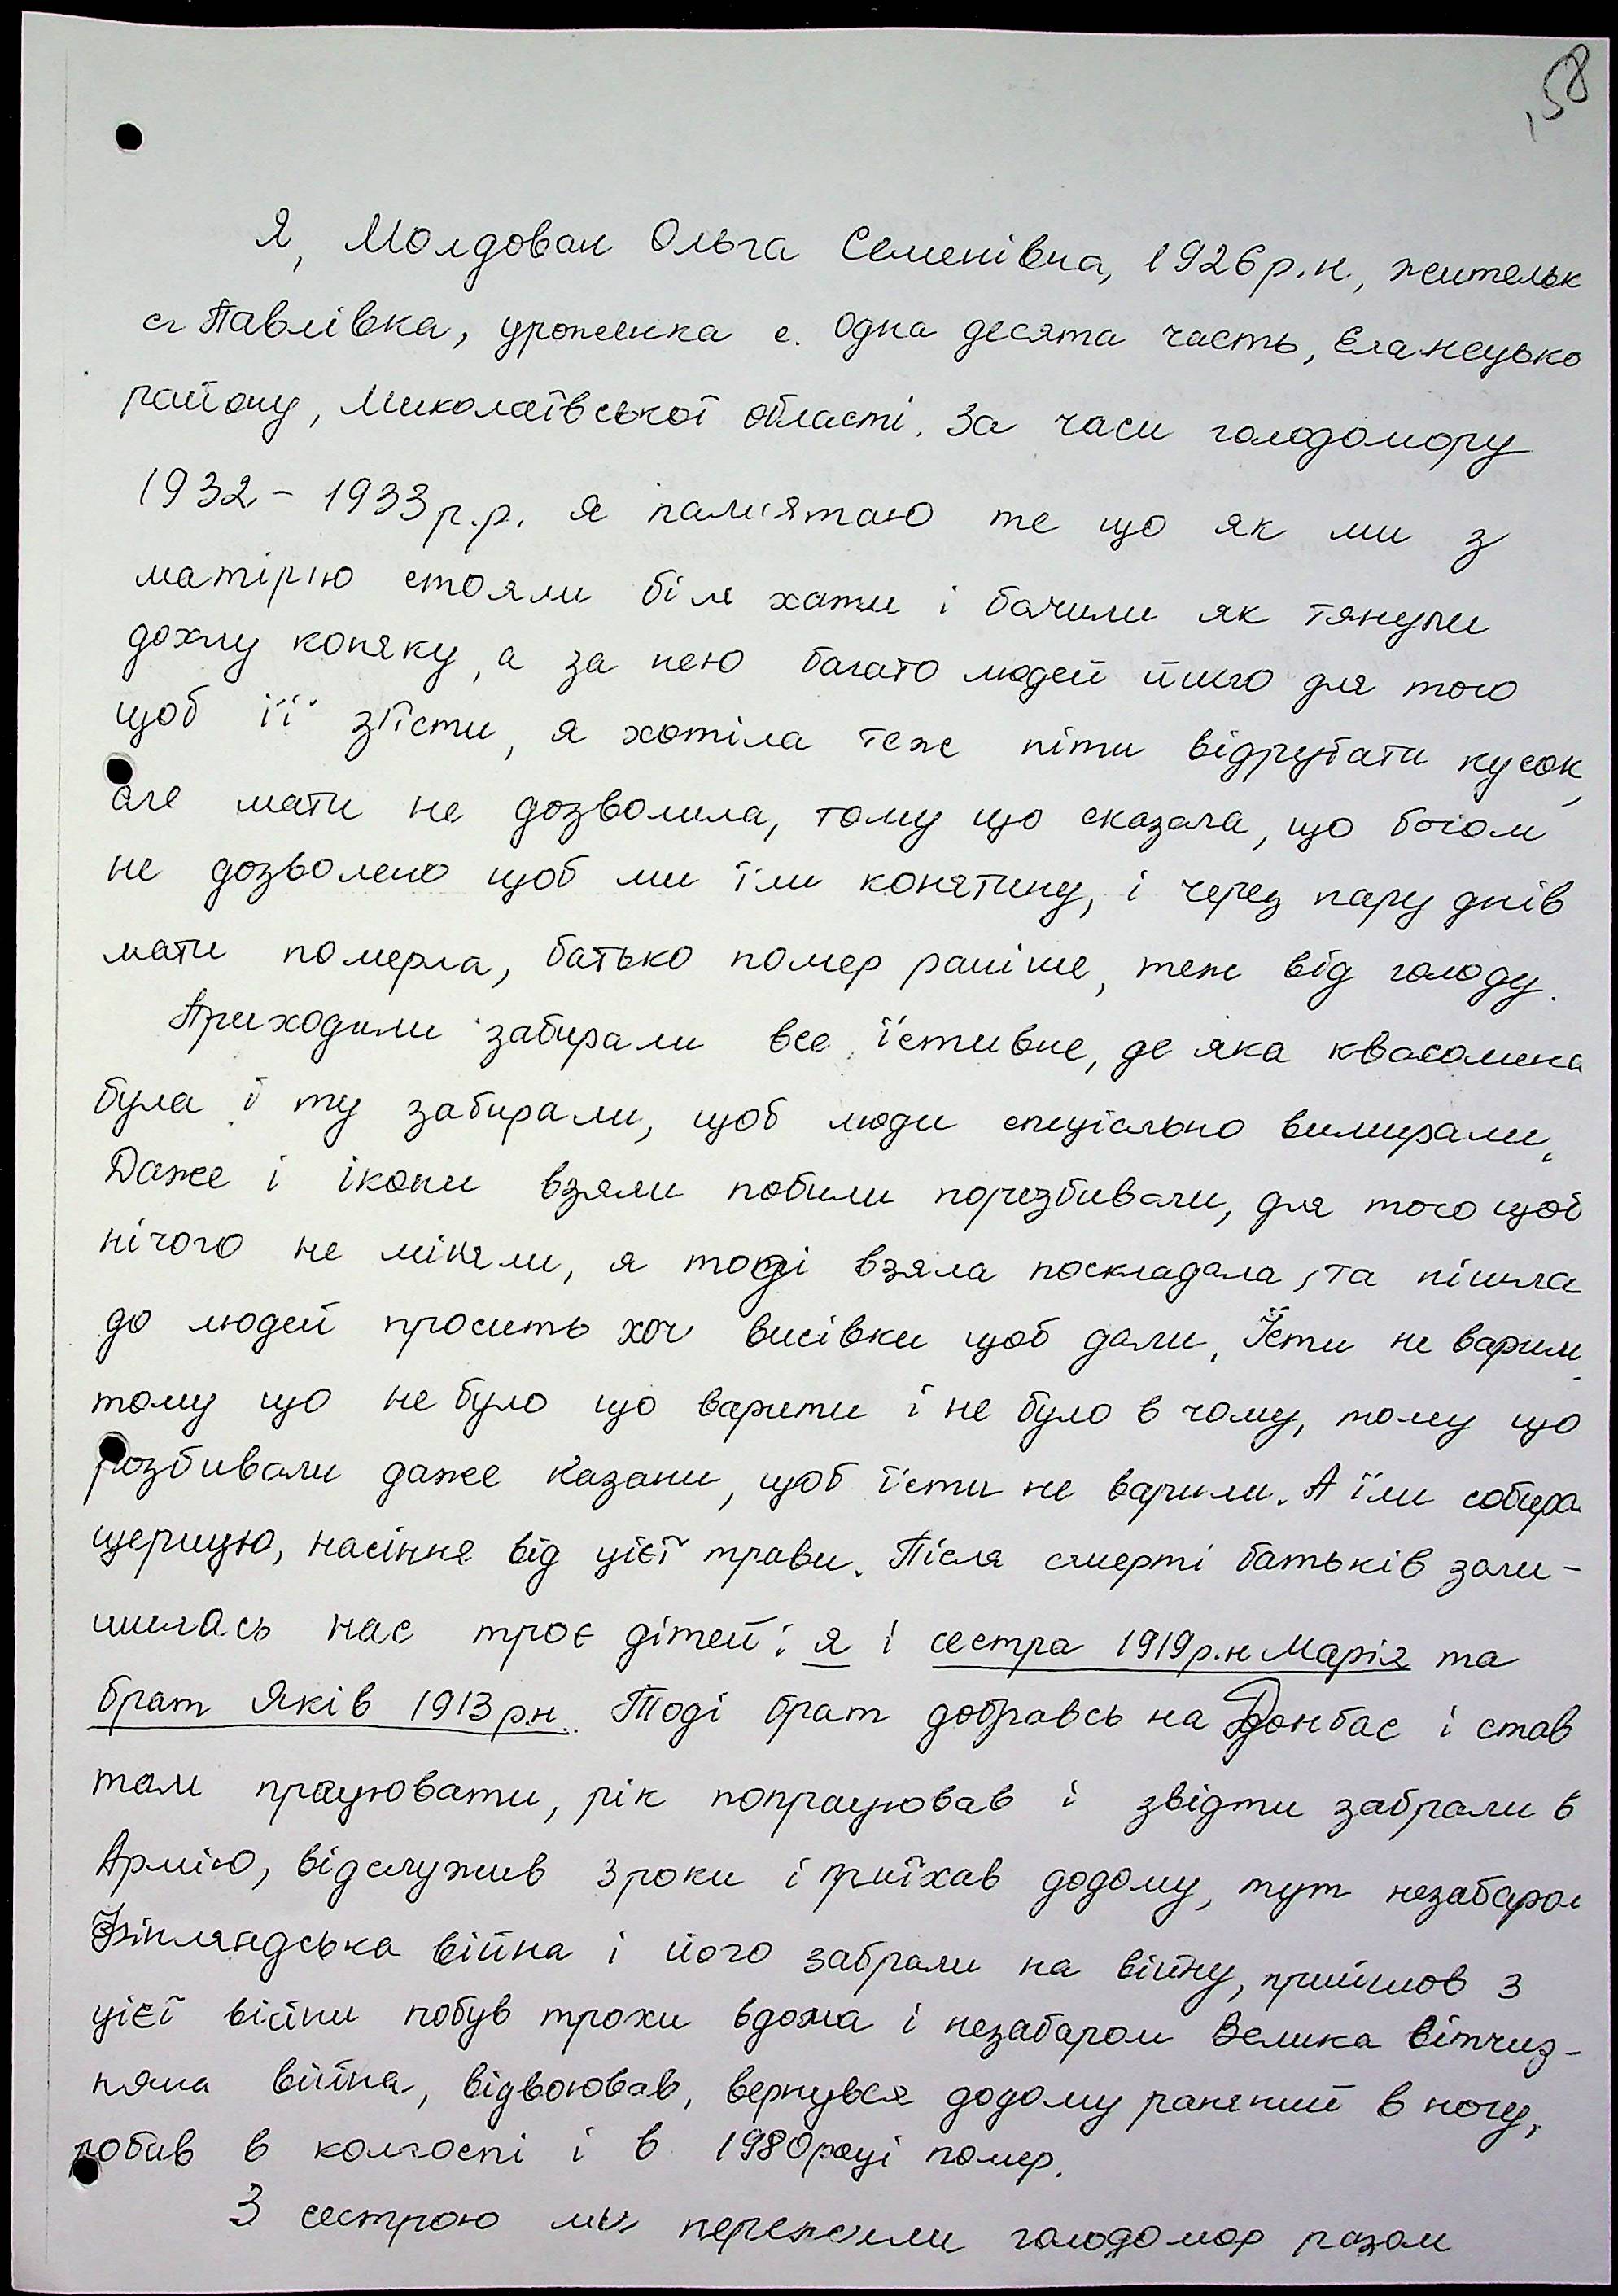 58
Я, Молдован Ольга Семенівна, 1926р.н, жительк
с. Павлівка, уроженка с. Одна десята часть, Єланецько
району, Миколаївської області. За часи голодомору
1932 - 1933р.р. я пам'ятаю те що як ми з
матір'ю стояли біля хати і бачили як тянули
дохлу коняку, а за нею багато людей йшло для того
щоб її з'їсти, я хотіла теж піти відрубати кусок,
але мати не дозволила, тому що сказала, що богом
не дозволено щоб ми їли конятину, і через пару днів
мати померла, батько помер раніше, теж від голоду.
Приходили забирали все їстивне, де яка квасолина
була і ту забирали, щоб люди спеціально вимирали.
Даже і ікони взяли побили порозбивали, для того щоб
нічого не міняли, я тоді взяла поскладала, та пішла
до людей просить хоч висівки щоб дали. Їсти не варили
тому що не було що варити і не було в чому, тому що
розбивали даже казани, щоб їсти не варили. А їли собира
щерицю, насіння від цієї трави. Після смерті батьків зали-
шилась нас троє дітей: я і сестра 1919р.н Марія та
брат Яків 1913р.н. Тоді брат добравсь на Донбас і став
там працювати, рік попрацював і звідти забрали в
Армію, відслужив 3 роки і приїхав додому, тут незабаром
Фінляндська війна і його забрали на війну, прийшов з
цієї війни побув трохи вдома і незабаром Велика Вітчиз-
няна війна, відвоював, вернувся додому раняний в ногу,
робив в колгоспі і в 1980році помер.
З сестрою ми пережили голодомор разом